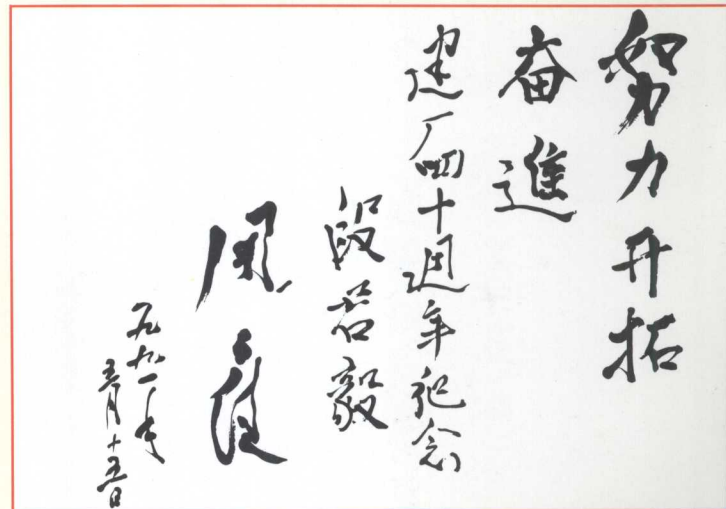 努力开拓
奋進
建厂四十週年纪念
段君毅
周子健
一九九一年
五月十五日